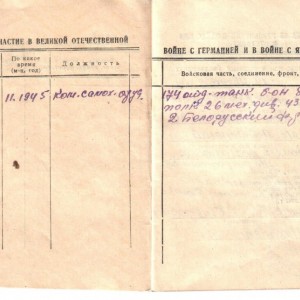 УЧАСТИЕ В ВЕЛИКОЙ ОТЕЧЕСТВЕННОЙ
По какое время (м-ц, год)
Должность
11.1945 Ком. самох.
ВОЙНЕ С ГЕРМАНИЕЙ И В ВОЙНЕ С Я
Войсковая часть, соединение, фронт,
174 танк.
полк 26 мех. див. 43
2 Белорусский